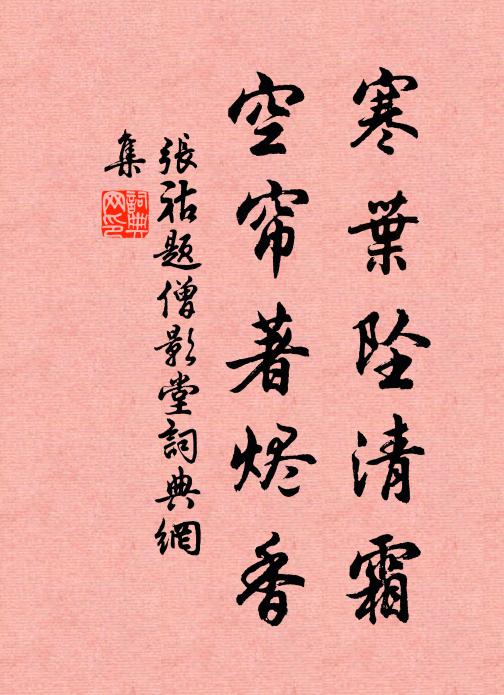 寒葉坠清霜
空帘著烬香
張祜题僧影堂詞典網
集
詞典网印